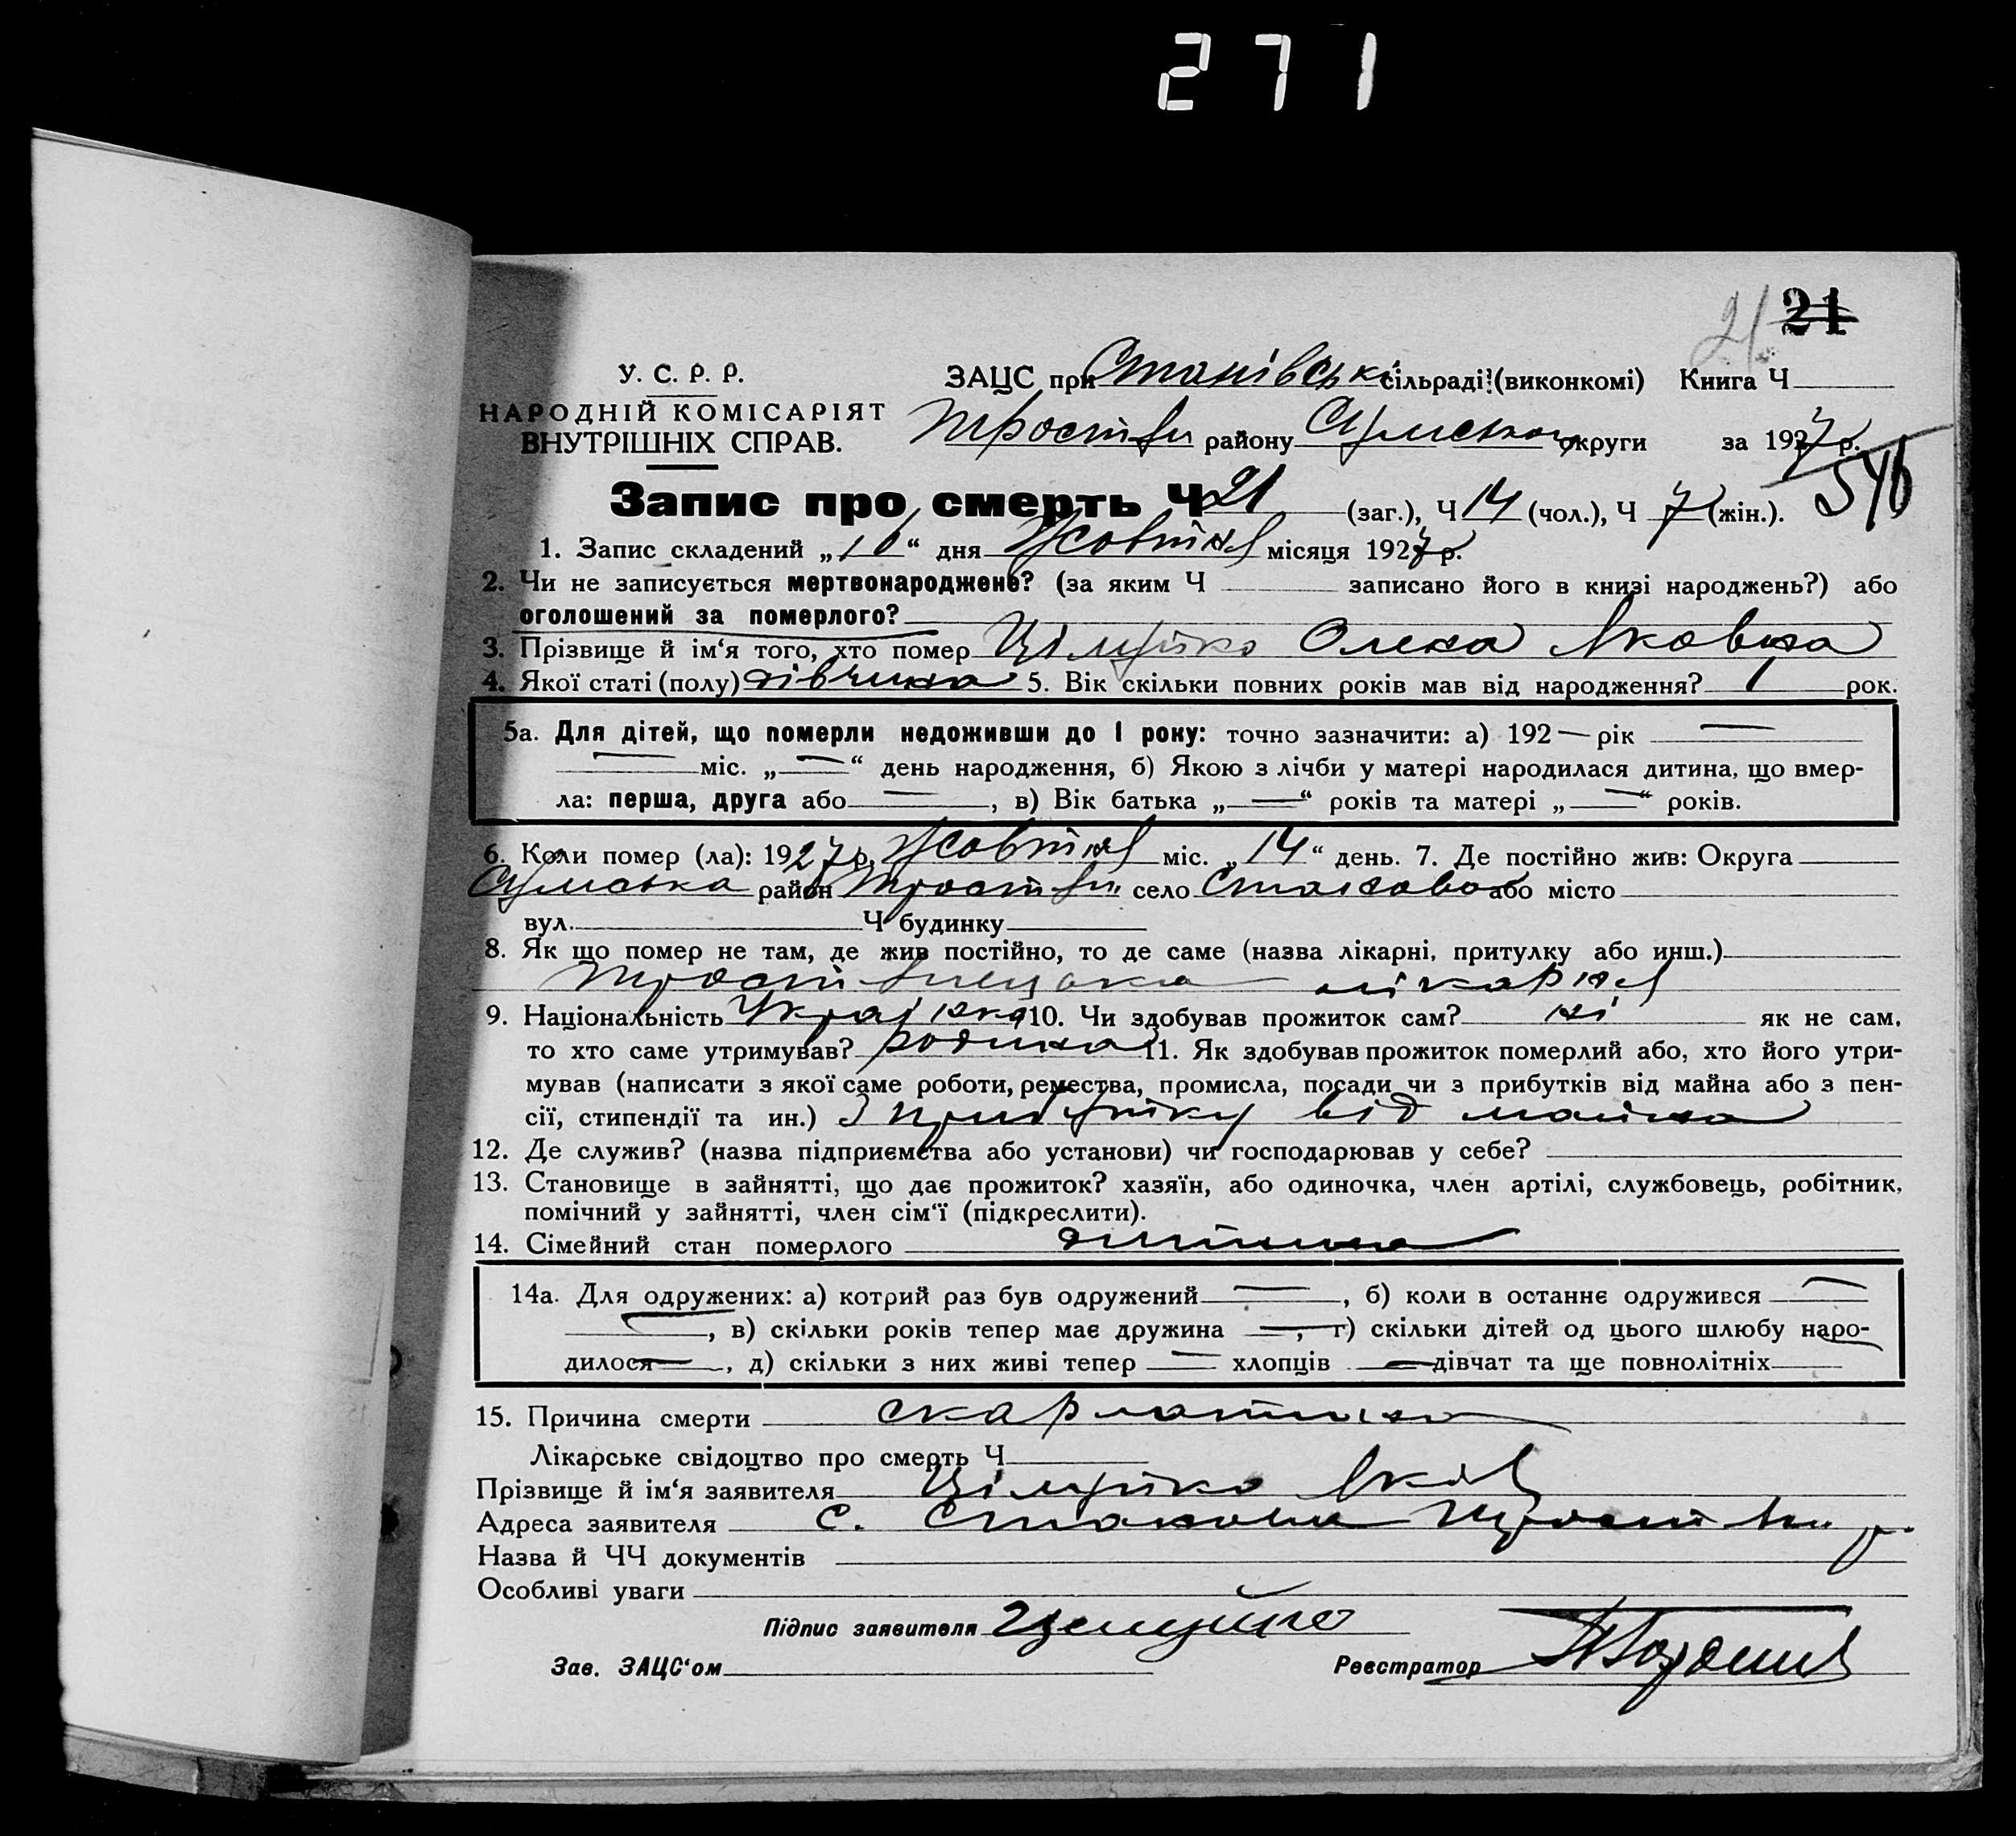 271
21 21
У. С. Р. Р.
НАРОДНІЙ КОМІСАРІЯТ
ВНУТРІШНІХ СПРАВ.
ЗАЦС при Станівській сільраді (виконкомі) Книга Ч
Тростян району Сумської округи за 1927 р.
546
Запис про смерть Ч 21 (заг.), Ч 14 (чол.), Ч 7 (жін.).
1. Запис складений „16“ дня Жовтня місяця 1927 р.
2. Чи не записується мертвонароджене? (за яким Ч записано його в книзі народжень?) або
оголошений за померлого?
3. Прізвище й ім‘я того, хто помер Олена Яковна
4. Якої статі (полу) дівчина 5. Вік скільки повних років мав від народження? 1 рок.
5а. Для дітей, що померли недоживши до 1 року: точно зазначити: а) 192— рік —
— міс. „—“ день народження, б) Якою з лічби у матері народилася дитина, що вмер-
ла: перша, друга або —, в) Вік батька „—“ років та матері „—“ років.
6. Коли помер (ла): 1927 р. Жовтня міс. „14“ день. 7. Де постійно жив: Округа
Сумська район село Станова або місто
вул. Ч будинку
8. Як що помер не там, де жив постійно, то де саме (назва лікарні, притулку або инш.)
Тростянецька лікарня
9. Національність Українка 10. Чи здобував прожиток сам? ні як не сам,
то хто саме утримував? родина 11. Як здобував прожиток померлий або, хто його утри-
мував (написати з якої саме роботи, ремества, промисла, посади чи з прибутків від майна або з пен-
сії, стипендії та ин.) З прибутку від майна
12. Де служив? (назва підприємства або установи) чи господарював у себе?
13. Становище в зайнятті, що дає прожиток? хазяїн, або одиночка, член артілі, службовець, робітник,
помічний у зайнятті, член сім‘ї (підкреслити).
14. Сімейний стан померлого дитина
14а. Для одружених: а) котрий раз був одружений —, б) коли в останнє одружився —
—, в) скільки років тепер має дружина —, г) скільки дітей од цього шлюбу наро-
дилося —, д) скільки з них живі тепер — хлопців — дівчат та ще повнолітніх
15. Причина смерти скарлатина
Лікарське свідоцтво про смерть Ч
Прізвище й ім‘я заявителя Яків
Адреса заявителя с. Станова р.
Назва й ЧЧ документів
Особливі уваги
Підпис заявителя
Зав. ЗАЦС‘ом Реєстратор